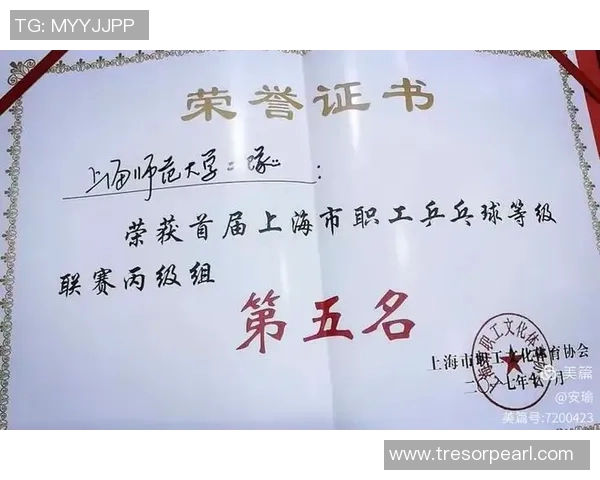 TG: MYYJJPP
荣誉证书
上海师范大学二队:
荣获首届上海市职工乒乓球等级
联赛丙级组
第五名
上海市职工文化体育协会
二〇一七年十一月
美篇
@安瑜
美篇号:7200423
www.tresorpearl.com